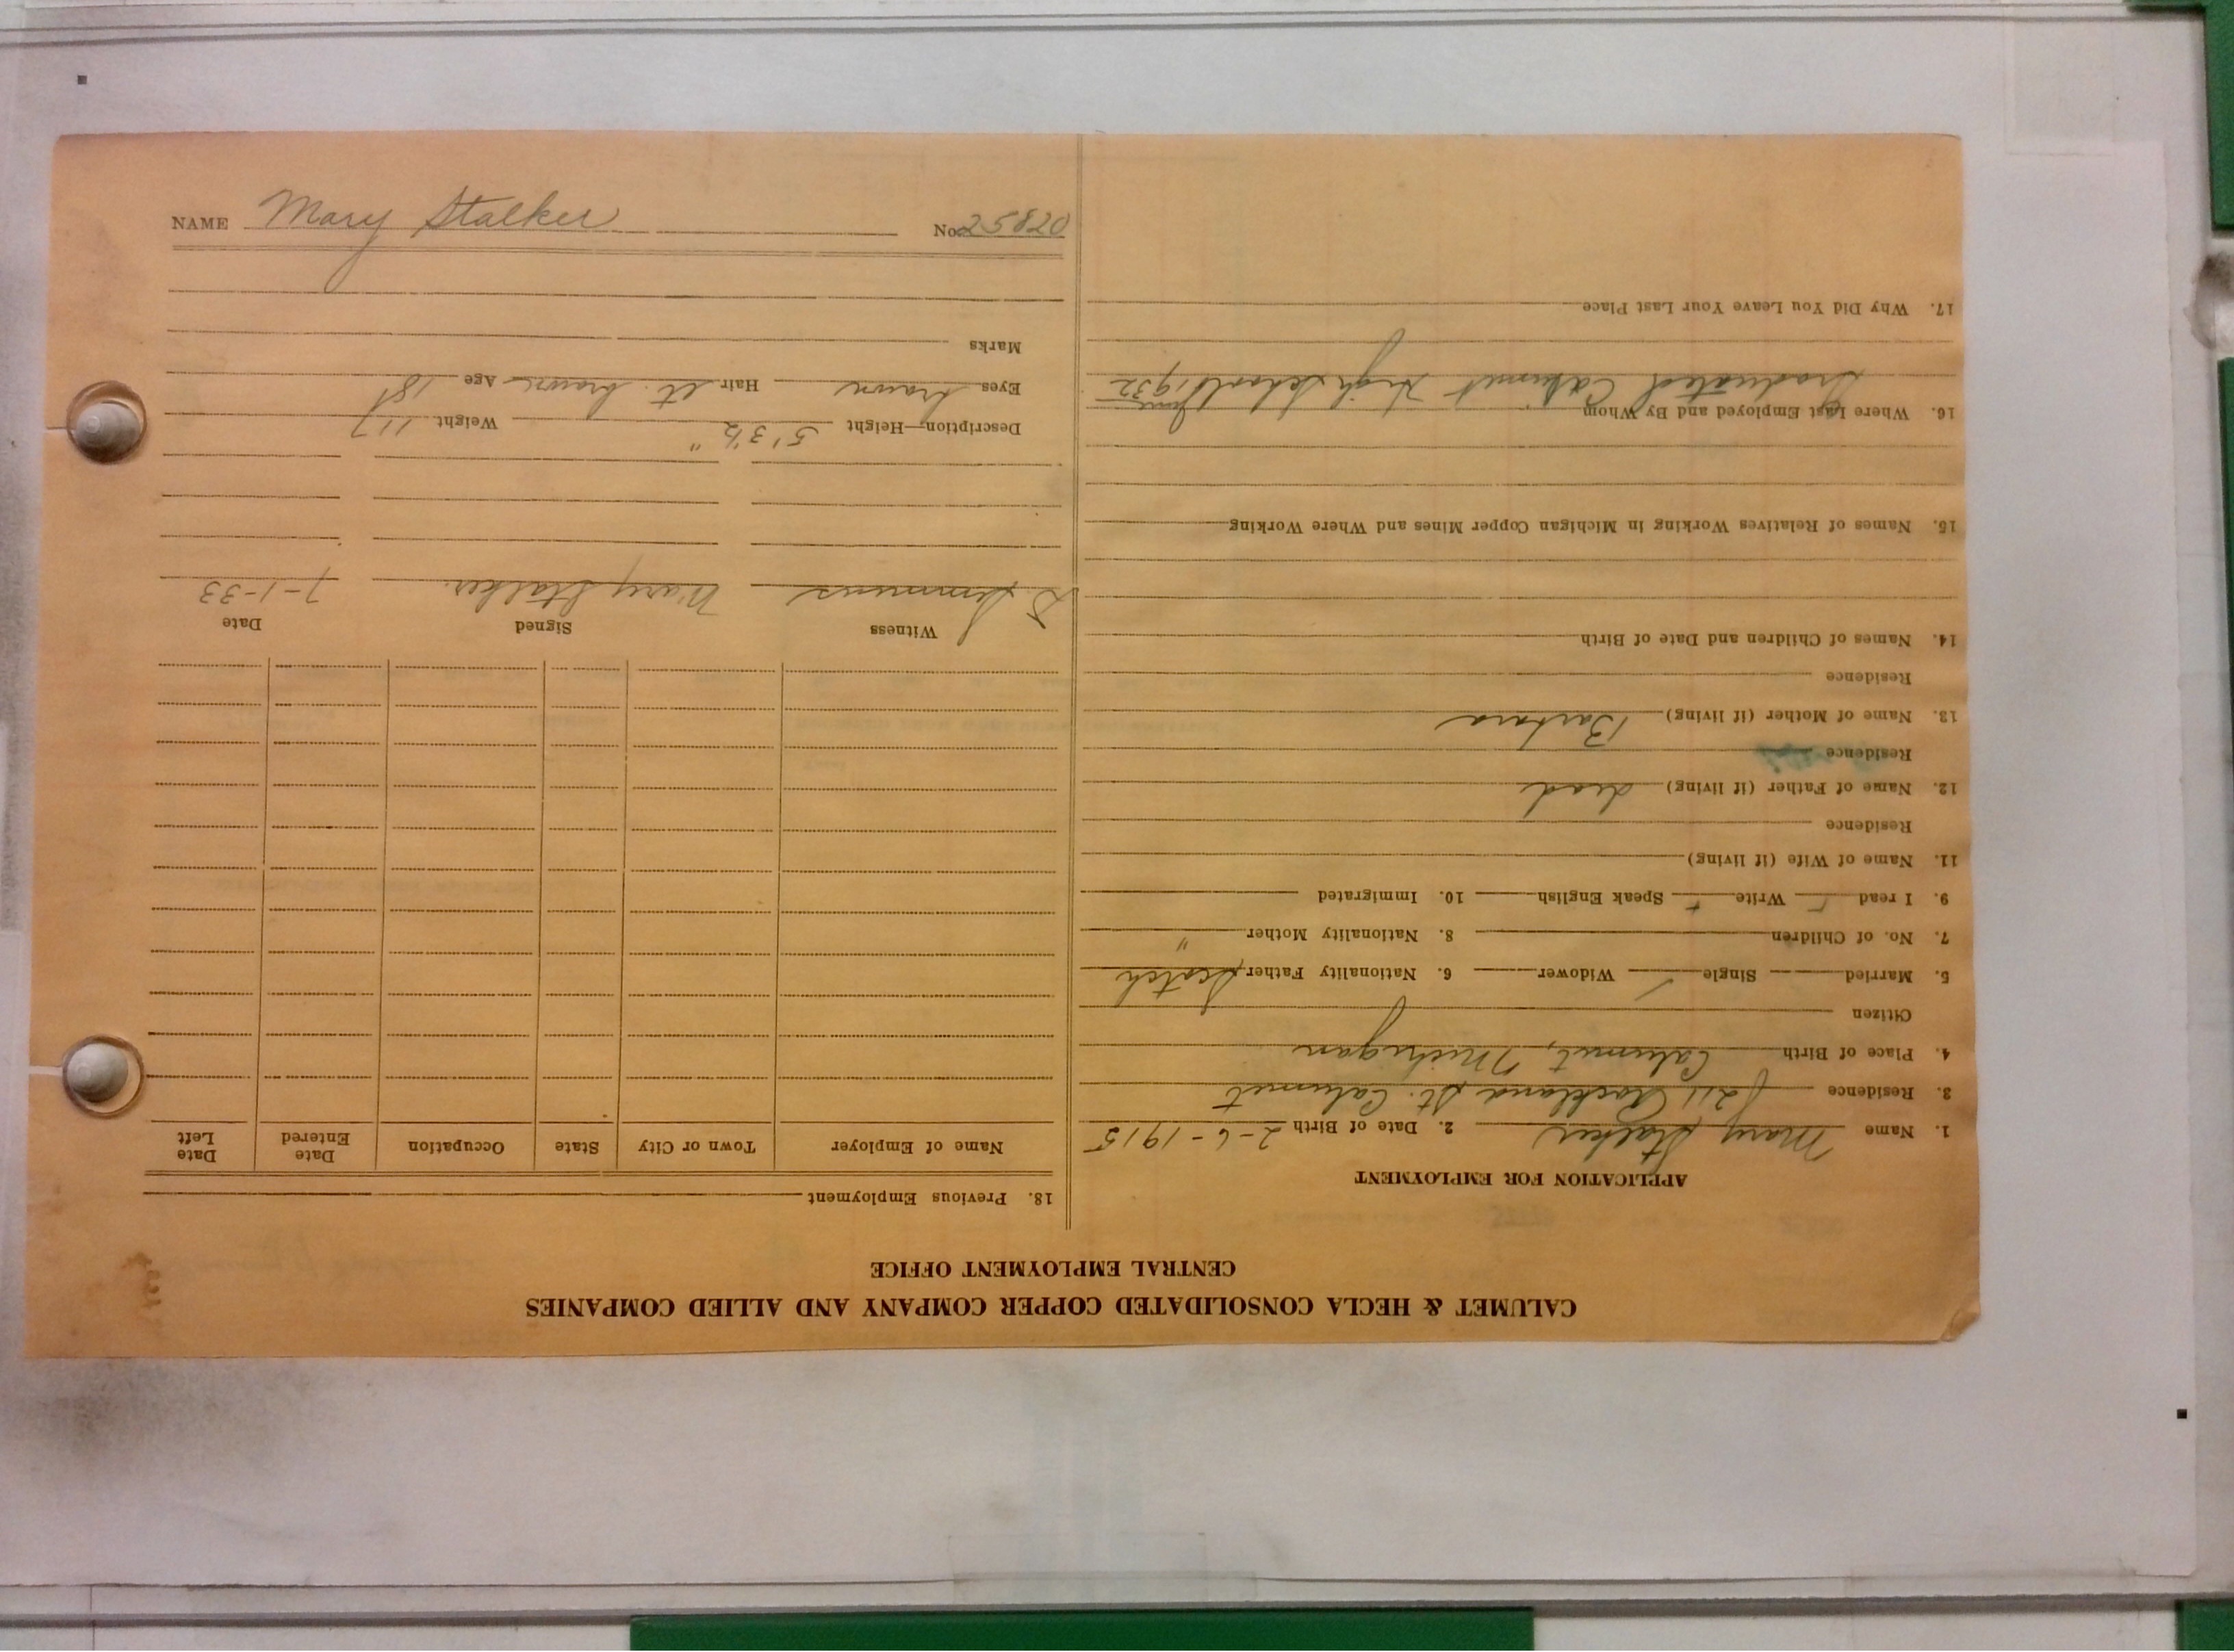 NAME Mary Stalker No. 25820
CALUMET & HECLA CONSOLIDATED COPPER COMPANY AND ALLIED COMPANIES
CENTRAL EMPLOYMENT OFFICE
APPLICATION FOR EMPLOYMENT
1. Name Mary Stalker 2. Date of Birth 2-6-1915
3. Residence 211 Rockland St. Calumet
4. Place of Birth Calumet, Michigan
Citizen
5. Married Single ✓ Widower 6. Nationality Father Scotch
7. No. of Children 8. Nationality Mother "
9. I read Write Speak English 10. Immigrated
11. Name of Wife (if living)
Residence
12. Name of Father (if living) dead
Residence
13. Name of Mother (if living) Barbara
Residence
14. Names of Children and Date of Birth
15. Names of Relatives Working in Michigan Copper Mines and Where Working
16. Where Last Employed and By Whom
Graduated Calumet High School June 1932
17. Why Did You Leave Your Last Place
18. Previous Employment
Name of Employer Town or City State Occupation Date Entered Date Left
Witness Signed Date
Mary Stalker 7-1-33
Description—Height 5' 3½" Weight 117
Eyes brown Hair lt. brown Age 18
Marks